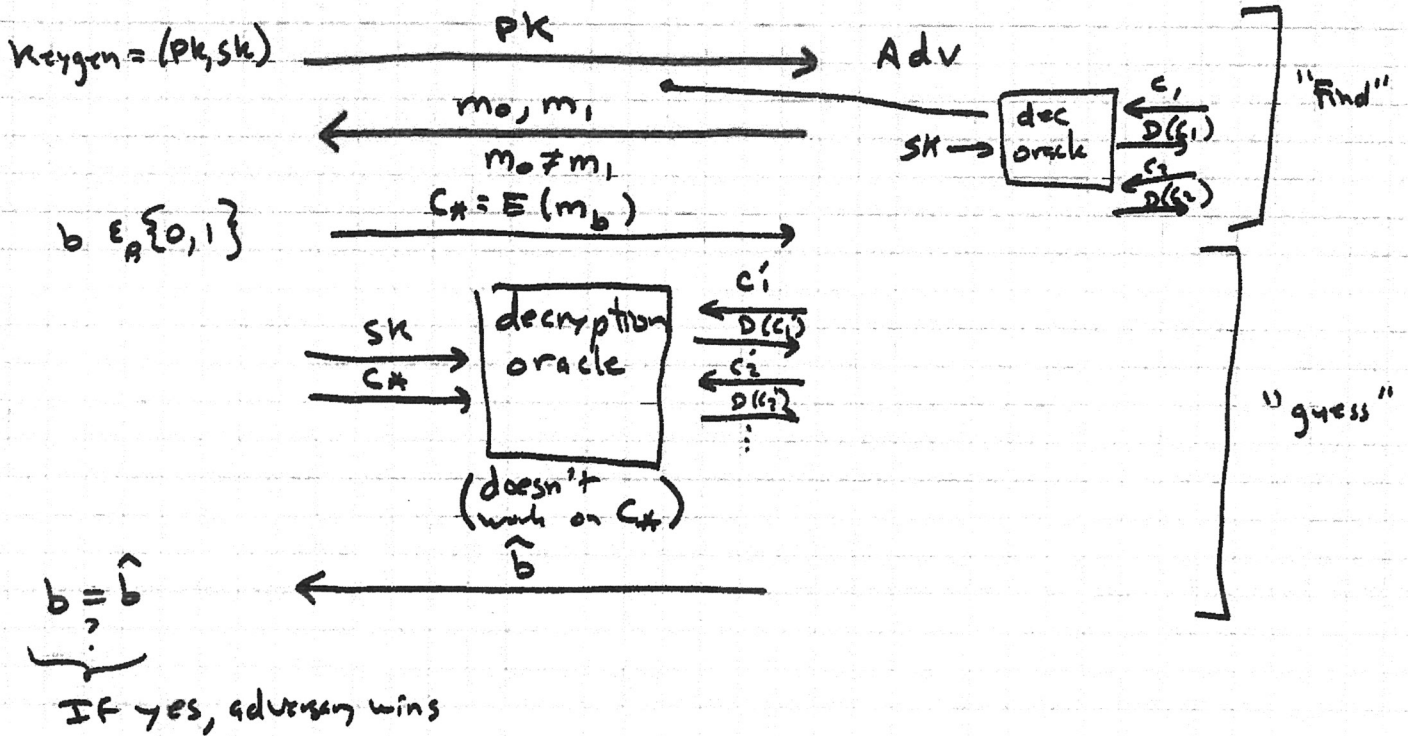 Keygen = (PK, SK)
PK
Adv
"Find"
m₀, m₁
m₀ ≠ m₁
SK
dec
oracle
C₁
D(C₁)
C₂
D(C₂)
b ∈ᵣ {0,1}
C* = E(m_b)
SK
C*
decryption
oracle
C₁'
D(C₁')
C₂'
D(C₂')
⋮
(doesn't
work on C*)
"guess"
b̂
b = b̂
?
If yes, adversary wins